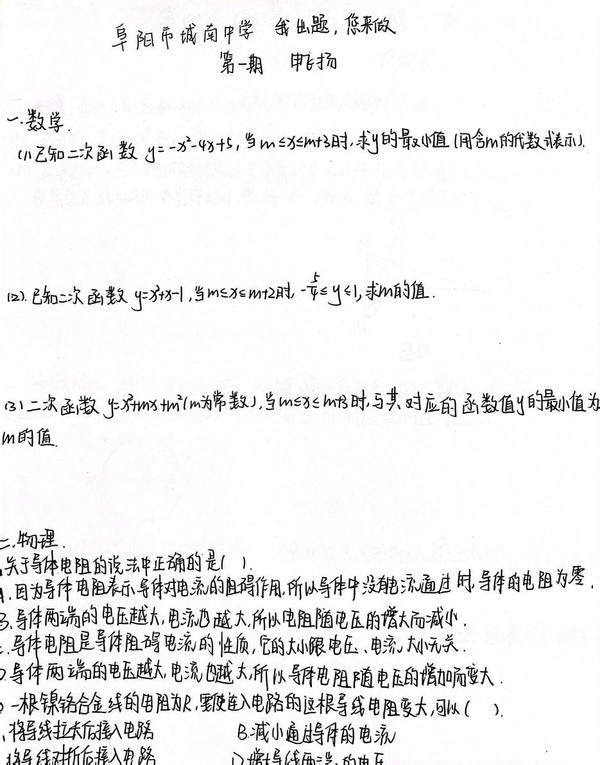 阜阳市城南中学 我出题，您来做
第一期 申飞扬
一.数学.
(1)已知二次函数 y=-x²-4x+5，当m≤x≤m+3时，求y的最小值(用含m的代数式表示).
(2).已知二次函数 y=x²+x-1，当m≤x≤m+2时，-5/4≤y≤1，求m的值.
(3)二次函数 y=x²+mx+m²(m为常数)，当m≤x≤m+3时，与其对应的函数值y的最小值为
m的值
二.物理.
关于导体电阻的说法中正确的是( ).
A.因为导体电阻表示导体对电流的阻碍作用，所以导体中没有电流通过时，导体的电阻为零.
B.导体两端的电压越大，电流也越大，所以电阻随电压的增大而减小.
导体电阻是导体阻碍电流的性质，它的大小跟电压、电流大小无关.
D.导体两端的电压越大，电流也越大，所以导体电阻随电压的增加而变大.
一根镍铬合金线的电阻为R，要使连入电路的这根导线电阻变大，可以( ).
将导线拉长后接入电路 B.减小通过导体的电流
将导线对折后接入电路 D.增大导线两端的电压